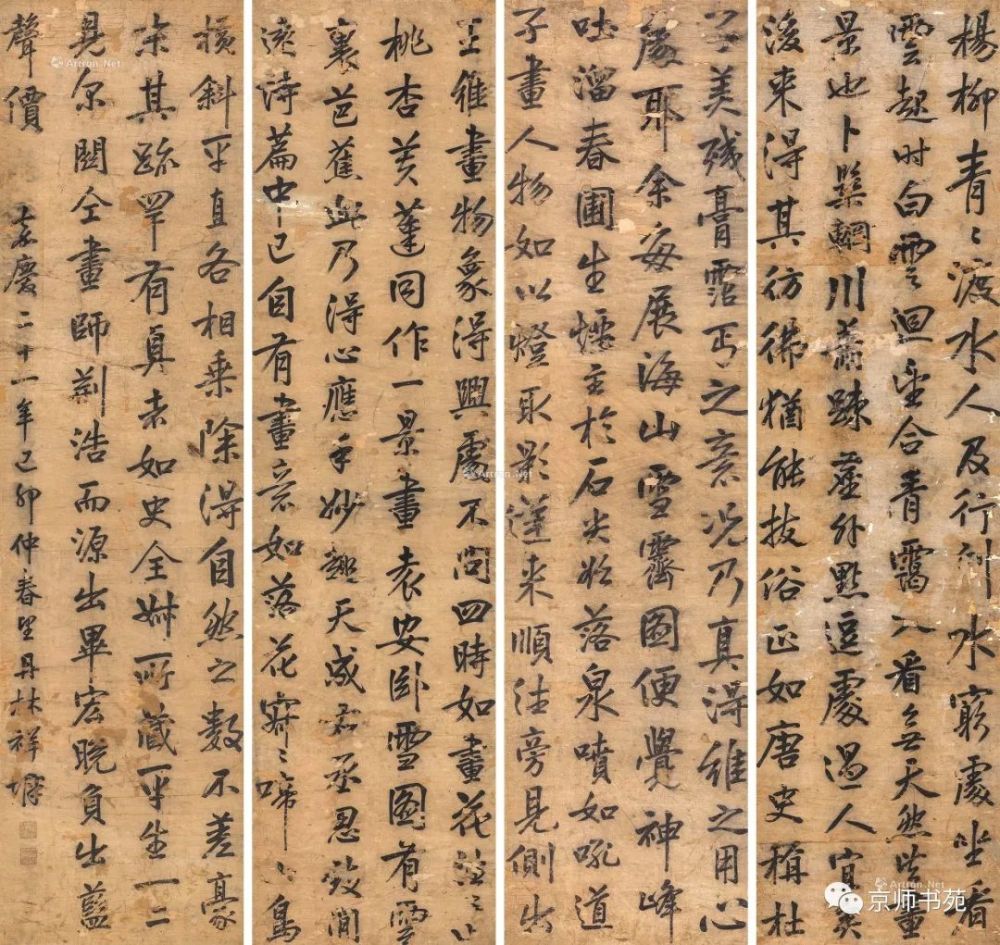 楊柳青〻渡水人及行到水窮處坐看
雲起时白雲迴望合青靄入看無天然皆畫
景也卜築輞川蕭踈塵外點逗處過人宜矣
後来得其彷彿猶能拔俗正如唐史稱杜
子美殘膏霑丐之意况乃真得維之用心
處耶余每展海山雪霽圖便覺神峰
吐溜春圃生烟主於石尖欲落泉噴如吼道
子畫人物如以燈取影逆来順往旁見側出
王維畫物象得興處不问四時如畫花往〻以
桃杏芙蓮同作一景畫袁安卧雪圖有雪
裏芭蕉此乃得心應手妙趣天成右丞思致閒
遠詩篇中已自有畫意如落花寂〻啼山鳥
橫斜平直各相乗除得自然之數不差豪
末其跡罕有真者如史全所藏平生一二
見尔關仝畫師荆浩而源出畢宏晚負出藍
聲價
嘉慶二十一年己卯仲春望丹林祥墀
Artron.Net
京师书苑